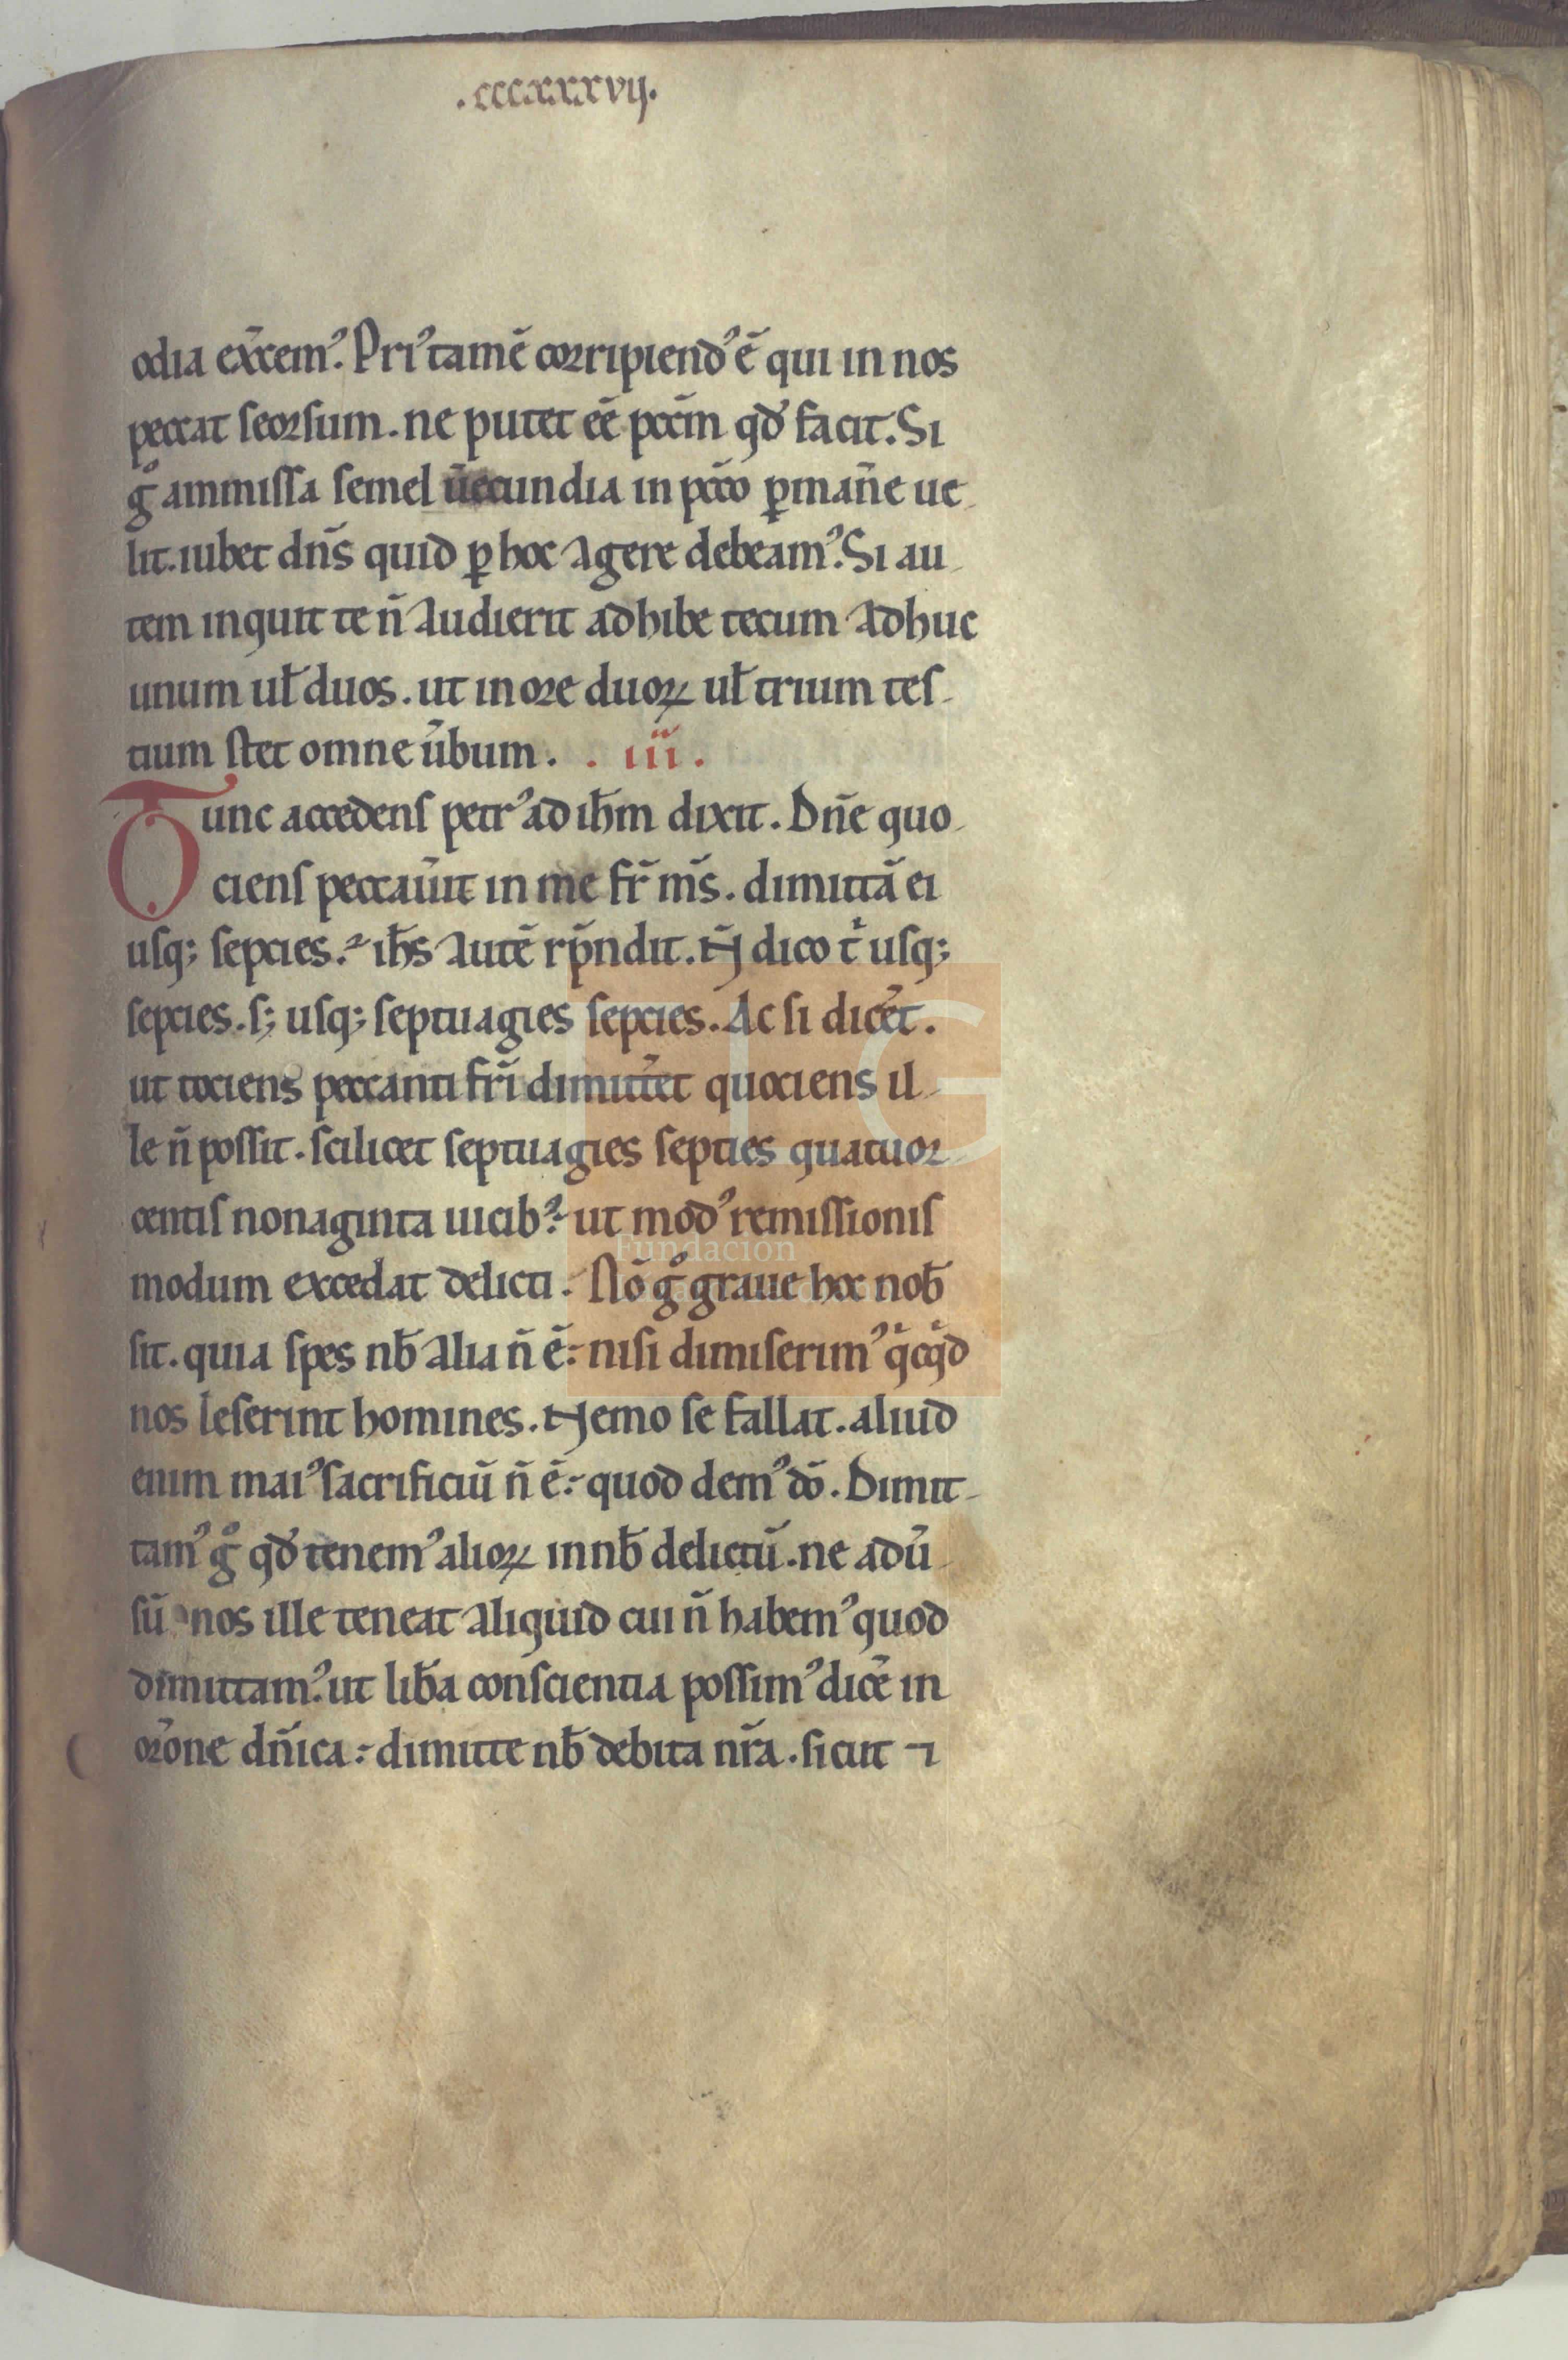 .cccxxxvij.
odia exc̄cem᾽. Pri᾽ tamē corripiend᾽ ē qui in nos
peccat seorsum. ne putet eē pcc̄m qd̕ facit. Si
gͦ ammissa semel u̅ecundia in pcc̄o ꝑman̄e ue-
lit. iubet dn̄s quid ꝑ hoc agere debeam᾽. Si au-
tem inquit te n̄ audierit adhibe tecum adhuc
unum ul̄ duos. ut in ore duoꝝ ul̄ trium tes-
tium stet omne u̅bum. . iii.
Tunc accedens petr᾽ ad ih̄m dixit. Dn̄e quo-
ciens peccau̅it in me fr̄ m̄s. dimittā ei
usq; sepcies. ih̄s autē rp̄ndit. N̄ dico tⁱ usq;
sepcies. s; usq; septuagies sepcies. Ac si dic̄et.
ut tociens peccanti fr̄i dimitt̄et quociens il-
le n̄ possit. scilicet septuagies septies quatuor-
centis nonaginta uicib᾽: ut mod᾽ remissionis
modum excedat delicti. Nō gͦ graue hoc nob̄
sit. quia spes nb̄ alia n̄ ē: nisi dimiserim᾽ qⁱcqⁱd
nos leserint homines. Nemo se fallat. aliud
enim mai᾽ sacrificiū n̄ ē: quod dem᾽ dō. Dimit-
tam᾽ gͦ qd̕ tenem᾽ alioꝝ in nb̄ delictū. ne adū-
sū nos ille teneat aliquid cui n̄ habem᾽ quod
dimittam᾽. ut lib̄a conscientia possim᾽ dic̄e in
or̄one dn̄ica: dimitte nb̄ debita nr̄a. sicut ⁊
Fundación